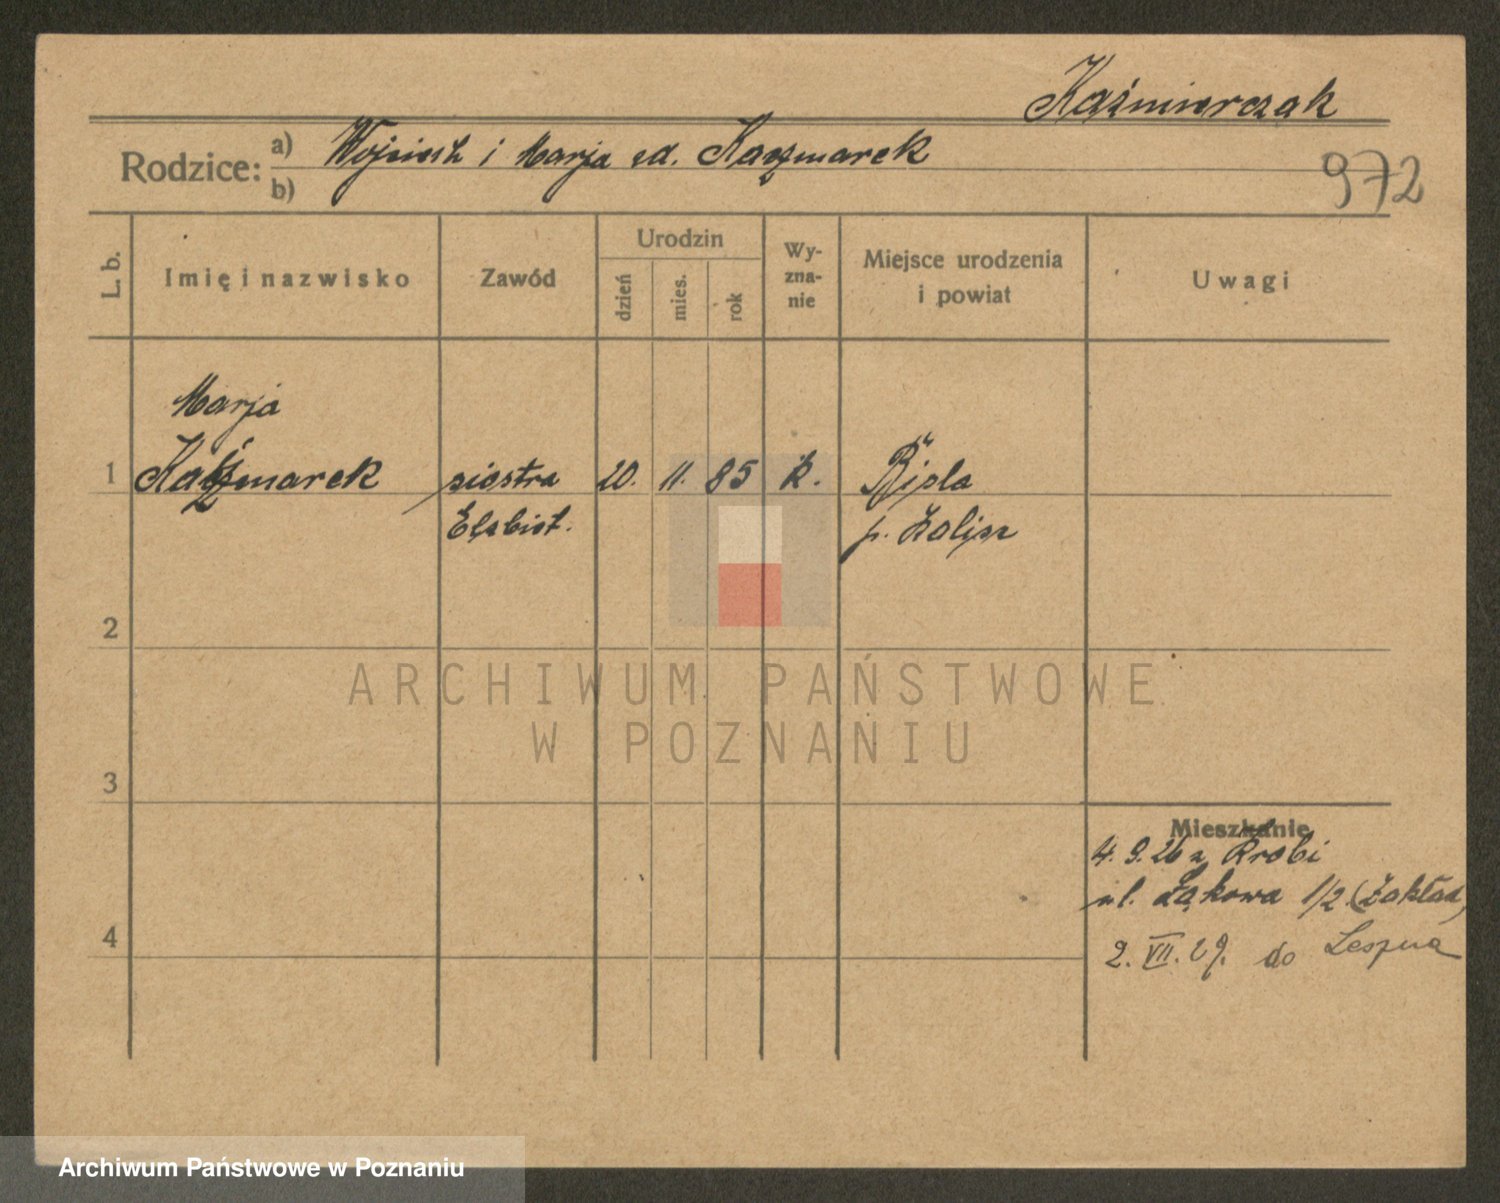 Kaźmierczak
Rodzice: a) Wojciech i Marja zd. Kaczmarek
b)
972
L. b.
Imię i nazwisko
Zawód
Urodzin
dzień
mies.
rok
Wy-
zna-
nie
Miejsce urodzenia
i powiat
Uwagi
Marja
1 Kaczmarek siostra 20. 11. 85 k.
Elżbiet.
p. Kalisz
2
3
4
Mieszkanie
4.9.26 z Krobi
ul. Łąkowa 1/2 (Zakład)
2. VII. 29. do Leszna
ARCHIWUM PAŃSTWOWE
W POZNANIU
Archiwum Państwowe w Poznaniu